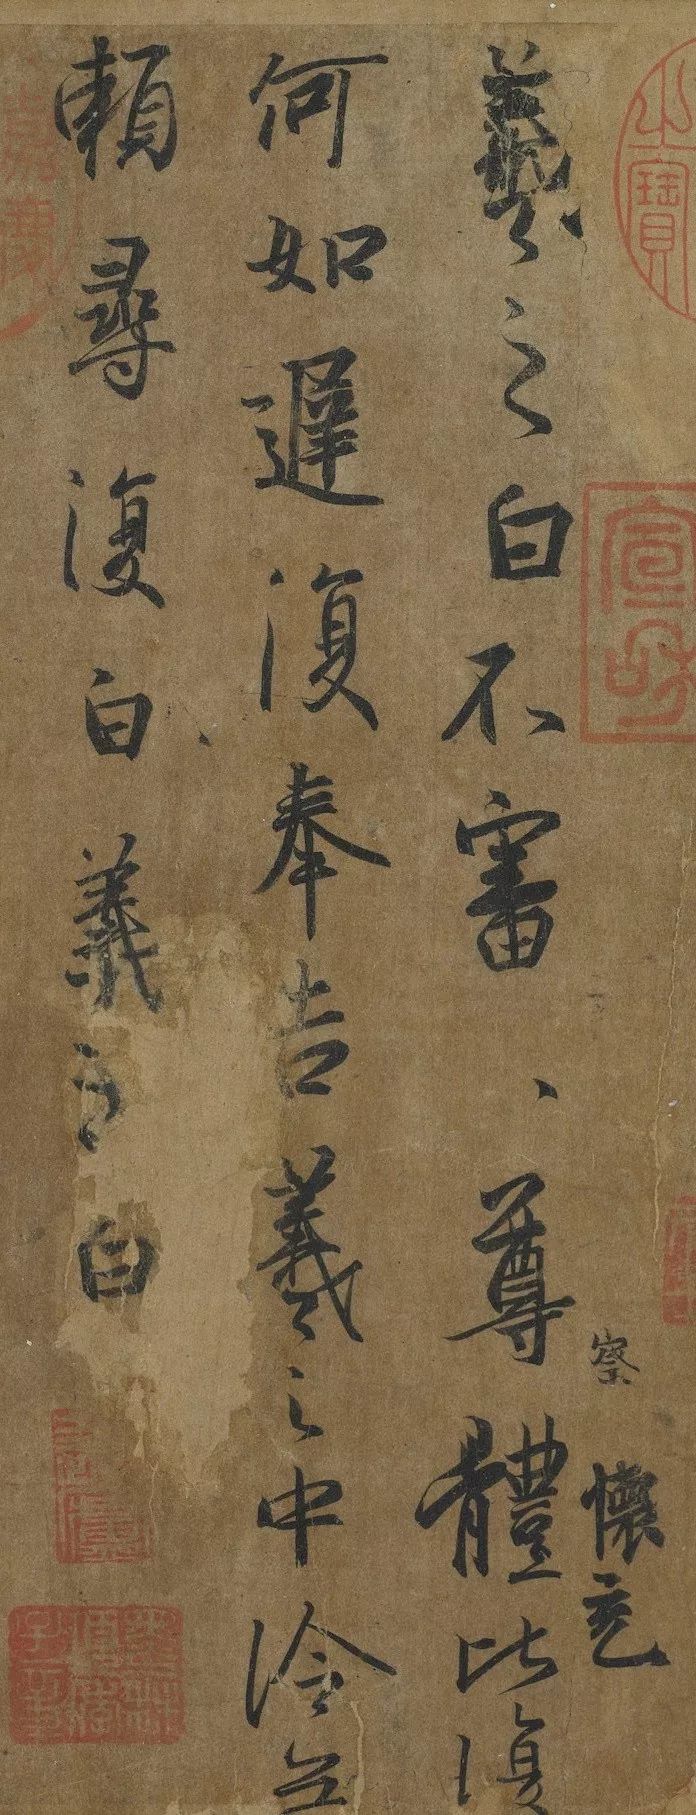 之寶
宣和
察
懷充
羲之白不審、尊體比復
何如遲復奉告羲之中冷無
賴尋復白羲之白